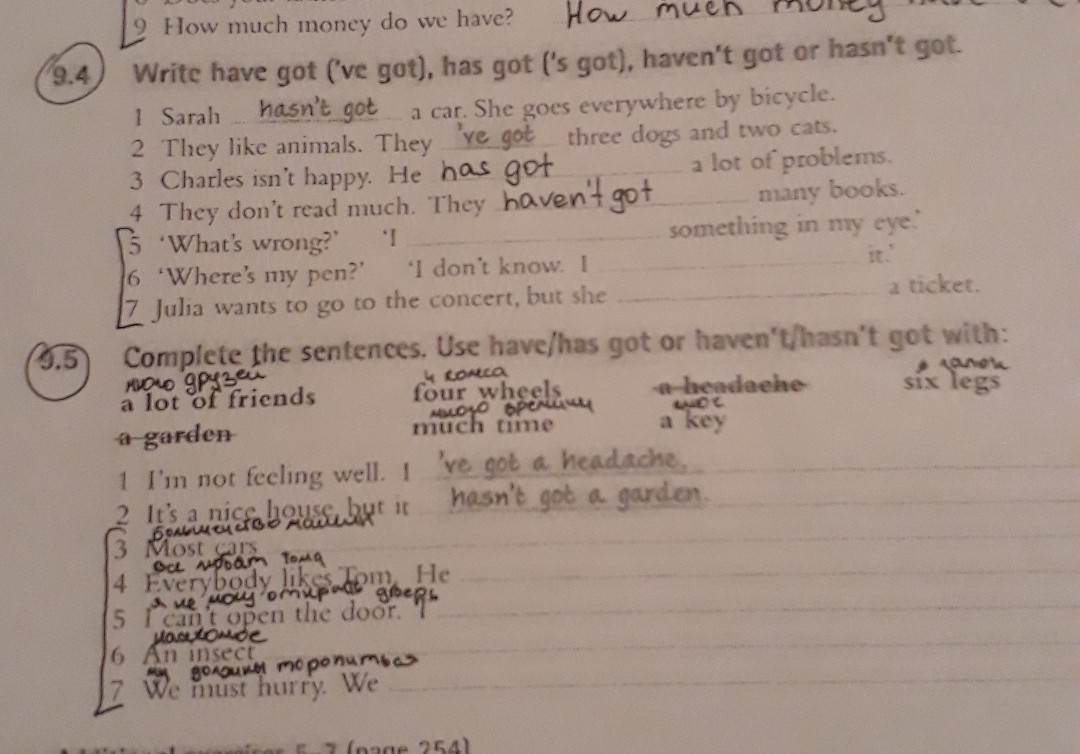 9 How much money do we have? How much money
9.4 Write have got ('ve got), has got ('s got), haven't got or hasn't got.
1 Sarah hasn't got a car. She goes everywhere by bicycle.
2 They like animals. They 've got three dogs and two cats.
3 Charles isn't happy. He has got a lot of problems.
4 They don't read much. They haven't got many books.
5 ‘What's wrong?’ ‘I something in my eye.’
6 ‘Where's my pen?’ ‘I don't know. I it.’
7 Julia wants to go to the concert, but she a ticket.
9.5 Complete the sentences. Use have/has got or haven't/hasn't got with:
много друзей 4 колеса
a lot of friends four wheels a headache six legs
много времени
a garden much time a key
1 I'm not feeling well. I 've got a headache.
2 It's a nice house but it hasn't got a garden.
большинство машин
3 Most cars
все любят Тома
4 Everybody likes Tom. He
я не могу открыть дверь
5 I can't open the door. I
насекомое
6 An insect
мы должны торопиться
7 We must hurry. We
(page 254)